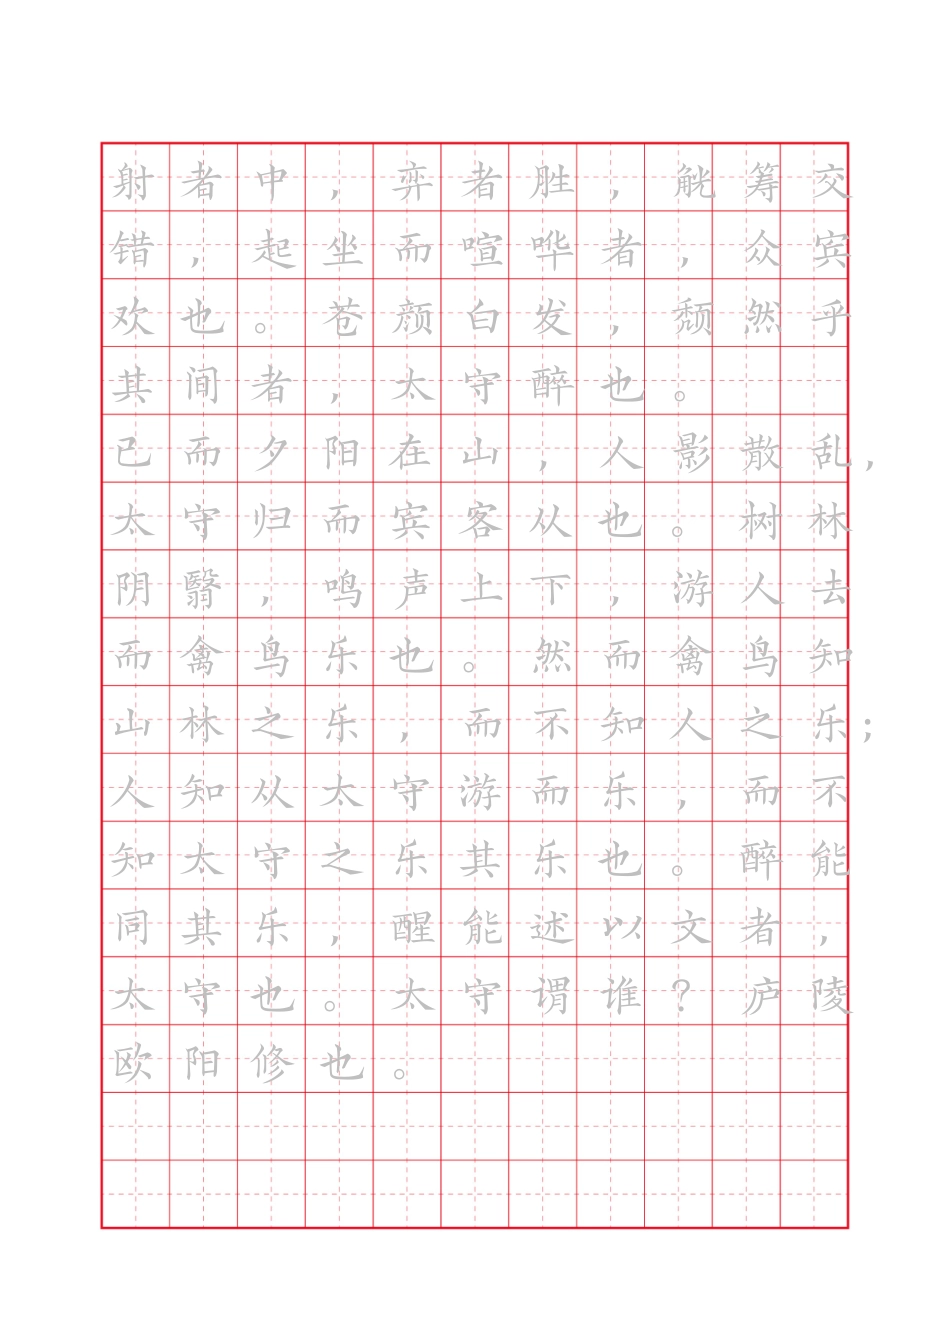 射者中，弈者胜，觥筹交
错，起坐而喧哗者，众宾
欢也。苍颜白发，颓然乎
其间者，太守醉也。
已而夕阳在山，人影散乱，
太守归而宾客从也。树林
阴翳，鸣声上下，游人去
而禽鸟乐也。然而禽鸟知
山林之乐，而不知人之乐；
人知从太守游而乐，而不
知太守之乐其乐也。醉能
同其乐，醒能述以文者，
太守也。太守谓谁？庐陵
欧阳修也。